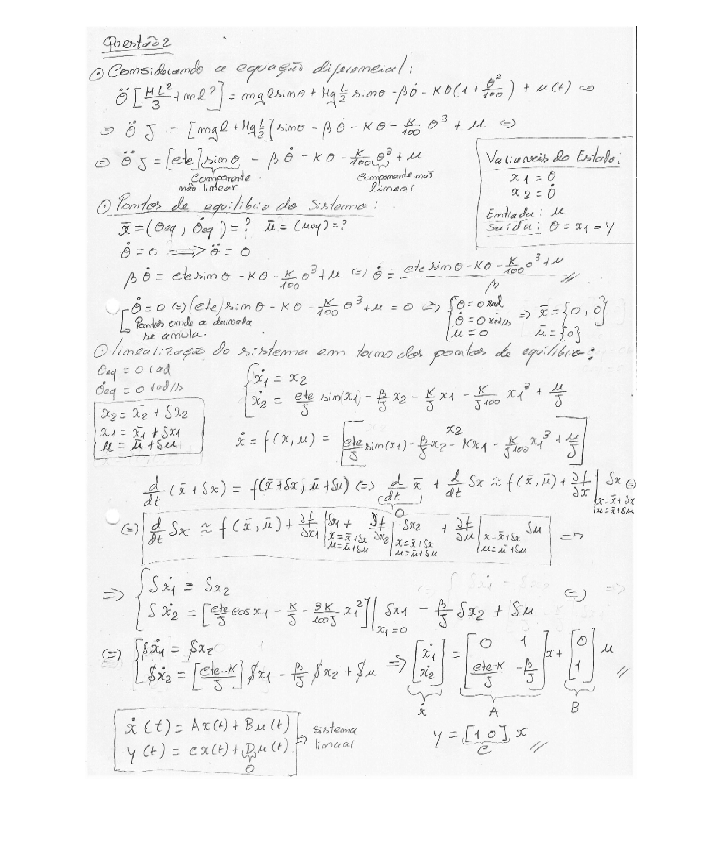 Questão 2
⊙ Considerando a equação diferencial:
θ̈ [ML²/3 + ml²] = mglsinθ + Mg L/2 sinθ - βθ̇ - Kθ(1 + θ²/100) + μ(t) ⇔
⇒ θ̈ J = [mgl + Mg L/2] sinθ - βθ̇ - Kθ - K/100 θ³ + μ ⇔
⇒ θ̈ J = [cte] sinθ - βθ̇ - Kθ - K/100 θ³ + μ
Componente não linear
Componente não linear
Variáveis de Estado:
x1 = θ
x2 = θ̇
Entrada: μ
Saída: θ = x1 = y
⊙ Pontos de equilíbio do sistema:
x̄ = (θeq, θ̇eq) = ? μ̄ = (μeq) = ?
θ̇ = 0 ⇒ θ̈ = 0
βθ̇ = cte sinθ - Kθ - K/100 θ³ + μ ⇔ θ̇ = (cte sinθ - Kθ - K/100 θ³ + μ)/β //
θ̇ = 0 ⇔ [cte] sinθ - Kθ - K/100 θ³ + μ = 0 ⇔ { θ = 0 rad
θ̇ = 0 rad/s
μ = 0
⇒ x̄ = {0, 0}
μ̄ = {0}
Pontos onde a derivada
se anula.
⊙ linealização do sistema em torno dos pontos de equilíbrio:
θeq = 0 rad
θ̇eq = 0 rad/s
ẋ1 = x2
ẋ2 = cte/J sin(x1) - β/J x2 - K/J x1 - K/J100 x1³ + μ/J
x2 = x̄2 + δx2
x1 = x̄1 + δx1
μ = μ̄ + δμ
ẋ = f(x, μ) = [ x2
cte/J sin(x1) - β/J x2 - Kx1 - K/J100 x1³ + μ/J ]
d/dt (x̄ + δx) = f(x̄ + δx, μ̄ + δμ) ⇔ d/dt x̄ + d/dt δx ≈ f(x̄, μ̄) + ∂f/∂x | δx ⇔
0
x = x̄ + δx
μ = μ̄ + δμ
⇔ d/dt δx ≈ f(x̄, μ̄) + ∂f/∂x1 | δx1 + ∂f/∂x2 | δx2 + ∂f/∂μ | δμ ⇒
x = x̄ + δx
μ = μ̄ + δμ
x = x̄ + δx
μ = μ̄ + δμ
x = x̄ + δx
μ = μ̄ + δμ
⇒ { δẋ1 = δx2
δẋ2 = [cte/J cos x1 - K/J - 3K/100J x1²] |x1=0 δx1 - β/J δx2 + δμ ⇔
⇔ { δẋ1 = δx2
δẋ2 = [cte-K/J] δx1 - β/J δx2 + δμ
⇒ [ẋ1
ẋ2] = [0 1
cte-K/J -β/J] x + [0
1] μ //
ẋ A B
ẋ(t) = Ax(t) + Bμ(t)
y(t) = Cx(t) + Dμ(t)
0
→ sistema
lineal
y = [1 0] x //
C